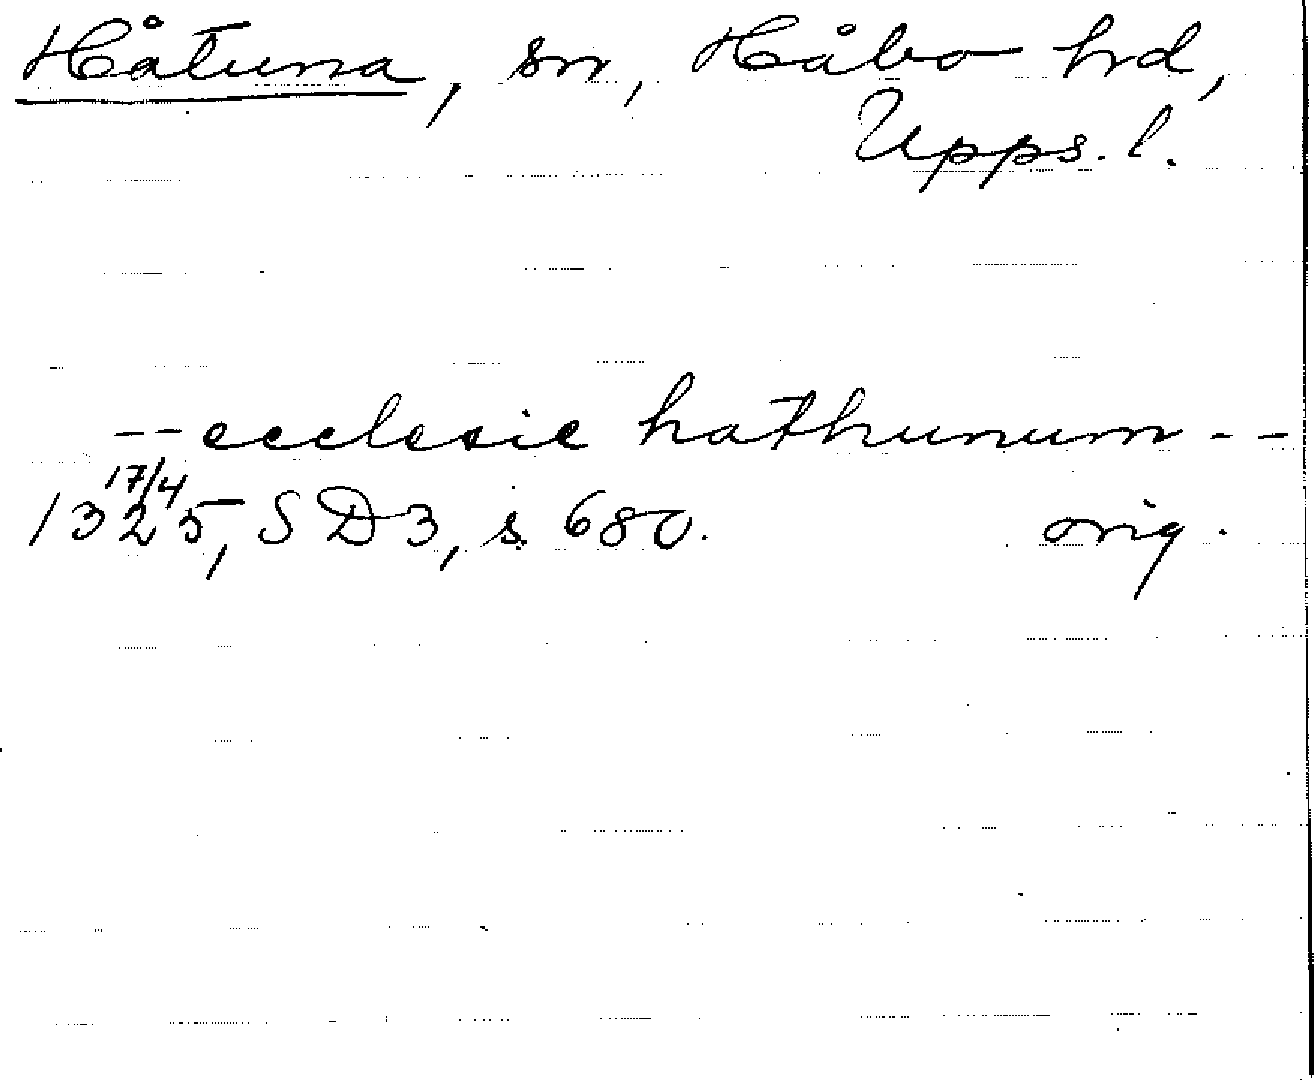 Håtuna, sn, Håbo hrd,
Upps. l.
-- ecclesie hathunum --
17/4
1325, SD3, s. 680. orig.